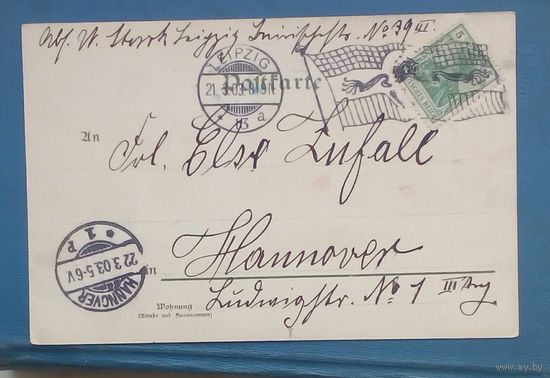 Abs. W. Stork Leipzig No 39 III.
LEIPZIG
21.3.03.8-9N
* 13 a
Postkarte
5
An
Frl. Else Zufall
HANNOVER
22.3.03.5-6V.
* 1 P
in
Hannover
Wohnung
(Straße und Hausnummer)
Ludwigstr. No 1 III
www.ay.by